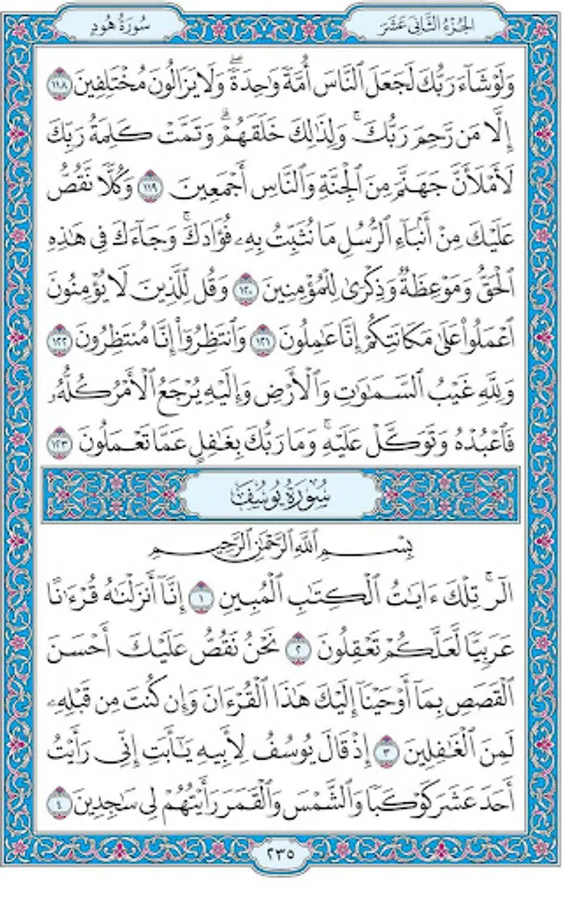 الجزء الثاني عشر
سورة هود
وَلَوْ شَآءَ رَبُّكَ لَجَعَلَ ٱلنَّاسَ أُمَّةً وَٰحِدَةً ۖ وَلَا يَزَالُونَ مُخْتَلِفِينَ ١١٨
إِلَّا مَن رَّحِمَ رَبُّكَ ۚ وَلِذَٰلِكَ خَلَقَهُمْ ۗ وَتَمَّتْ كَلِمَةُ رَبِّكَ
لَأَمْلَأَنَّ جَهَنَّمَ مِنَ ٱلْجِنَّةِ وَٱلنَّاسِ أَجْمَعِينَ ١١٩ وَكُلًّا نَّقُصُّ
عَلَيْكَ مِنْ أَنۢبَآءِ ٱلرُّسُلِ مَا نُثَبِّتُ بِهِۦ فُؤَادَكَ ۚ وَجَآءَكَ فِى هَٰذِهِ
ٱلْحَقُّ وَمَوْعِظَةٌ وَذِكْرَىٰ لِلْمُؤْمِنِينَ ١٢٠ وَقُل لِّلَّذِينَ لَا يُؤْمِنُونَ
ٱعْمَلُوا۟ عَلَىٰ مَكَانَتِكُمْ إِنَّا عَٰمِلُونَ ١٢١ وَٱنتَظِرُوٓا۟ إِنَّا مُنتَظِرُونَ ١٢٢
وَلِلَّهِ غَيْبُ ٱلسَّمَٰوَٰتِ وَٱلْأَرْضِ وَإِلَيْهِ يُرْجَعُ ٱلْأَمْرُ كُلُّهُۥ
فَٱعْبُدْهُ وَتَوَكَّلْ عَلَيْهِ ۚ وَمَا رَبُّكَ بِغَٰفِلٍ عَمَّا تَعْمَلُونَ ١٢٣
سُورَةُ يُوسُفَ
بِسْمِ ٱللَّهِ ٱلرَّحْمَٰنِ ٱلرَّحِيمِ
الٓر ۚ تِلْكَ ءَايَٰتُ ٱلْكِتَٰبِ ٱلْمُبِينِ ١ إِنَّآ أَنزَلْنَٰهُ قُرْءَٰنًا
عَرَبِيًّا لَّعَلَّكُمْ تَعْقِلُونَ ٢ نَحْنُ نَقُصُّ عَلَيْكَ أَحْسَنَ
ٱلْقَصَصِ بِمَآ أَوْحَيْنَآ إِلَيْكَ هَٰذَا ٱلْقُرْءَانَ وَإِن كُنتَ مِن قَبْلِهِۦ
لَمِنَ ٱلْغَٰفِلِينَ ٣ إِذْ قَالَ يُوسُفُ لِأَبِيهِ يَٰٓأَبَتِ إِنِّى رَأَيْتُ
أَحَدَ عَشَرَ كَوْكَبًا وَٱلشَّمْسَ وَٱلْقَمَرَ رَأَيْتُهُمْ لِى سَٰجِدِينَ ٤
٢٣٥